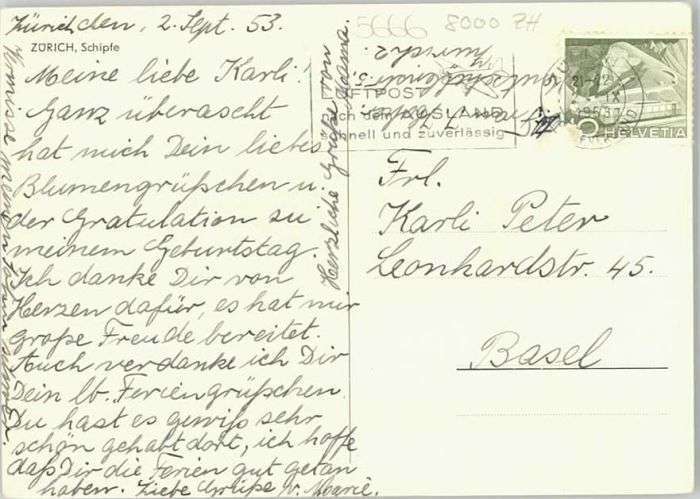 Zürich, den, 2. Sept. 53.
ZÜRICH, Schipfe
Meine liebe Karli!
Ganz überascht
hat mich Dein liebes
Blumengrüßchen u.
der Gratulation zu
meinem Geburtstag.
Ich danke Dir von
Herzen dafür, es hat mir
große Freude bereitet.
Auch verdanke ich Dir
Dein lb. Feriengrüßchen.
Du hast es gewiß sehr
schön gehabt dort, ich hoffe
daß Dir die Ferien gut getan
haben. Liebe Grüße v. Marie.
Herzliche Grüße von
5666 8000 ZH
LUFTPOST
nach dem AUSLAND
schnell und zuverlässig
5 HELVETIA
Frl.
Karli Peter
Leonhardstr. 45.
Basel